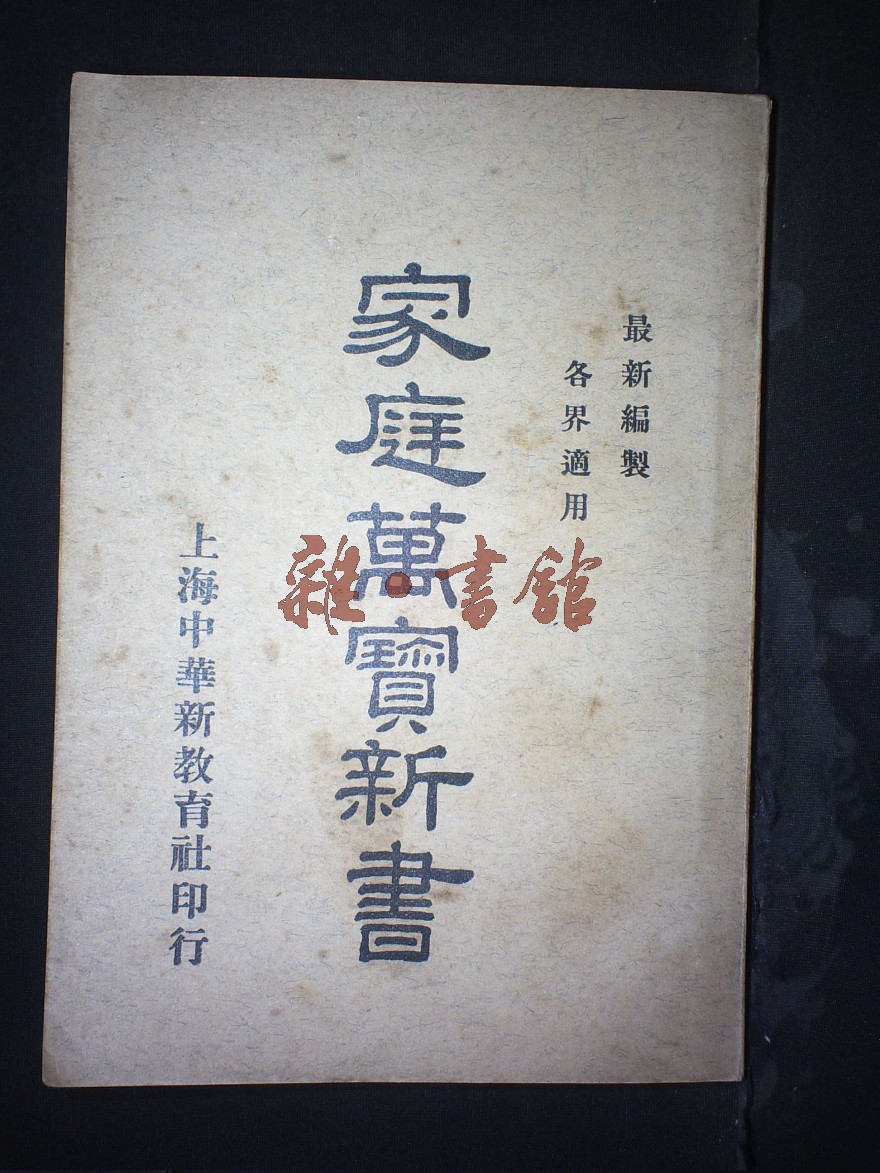 最新編製
各界適用
家庭萬寶新書
上海中華新教育社印行
雜·書館